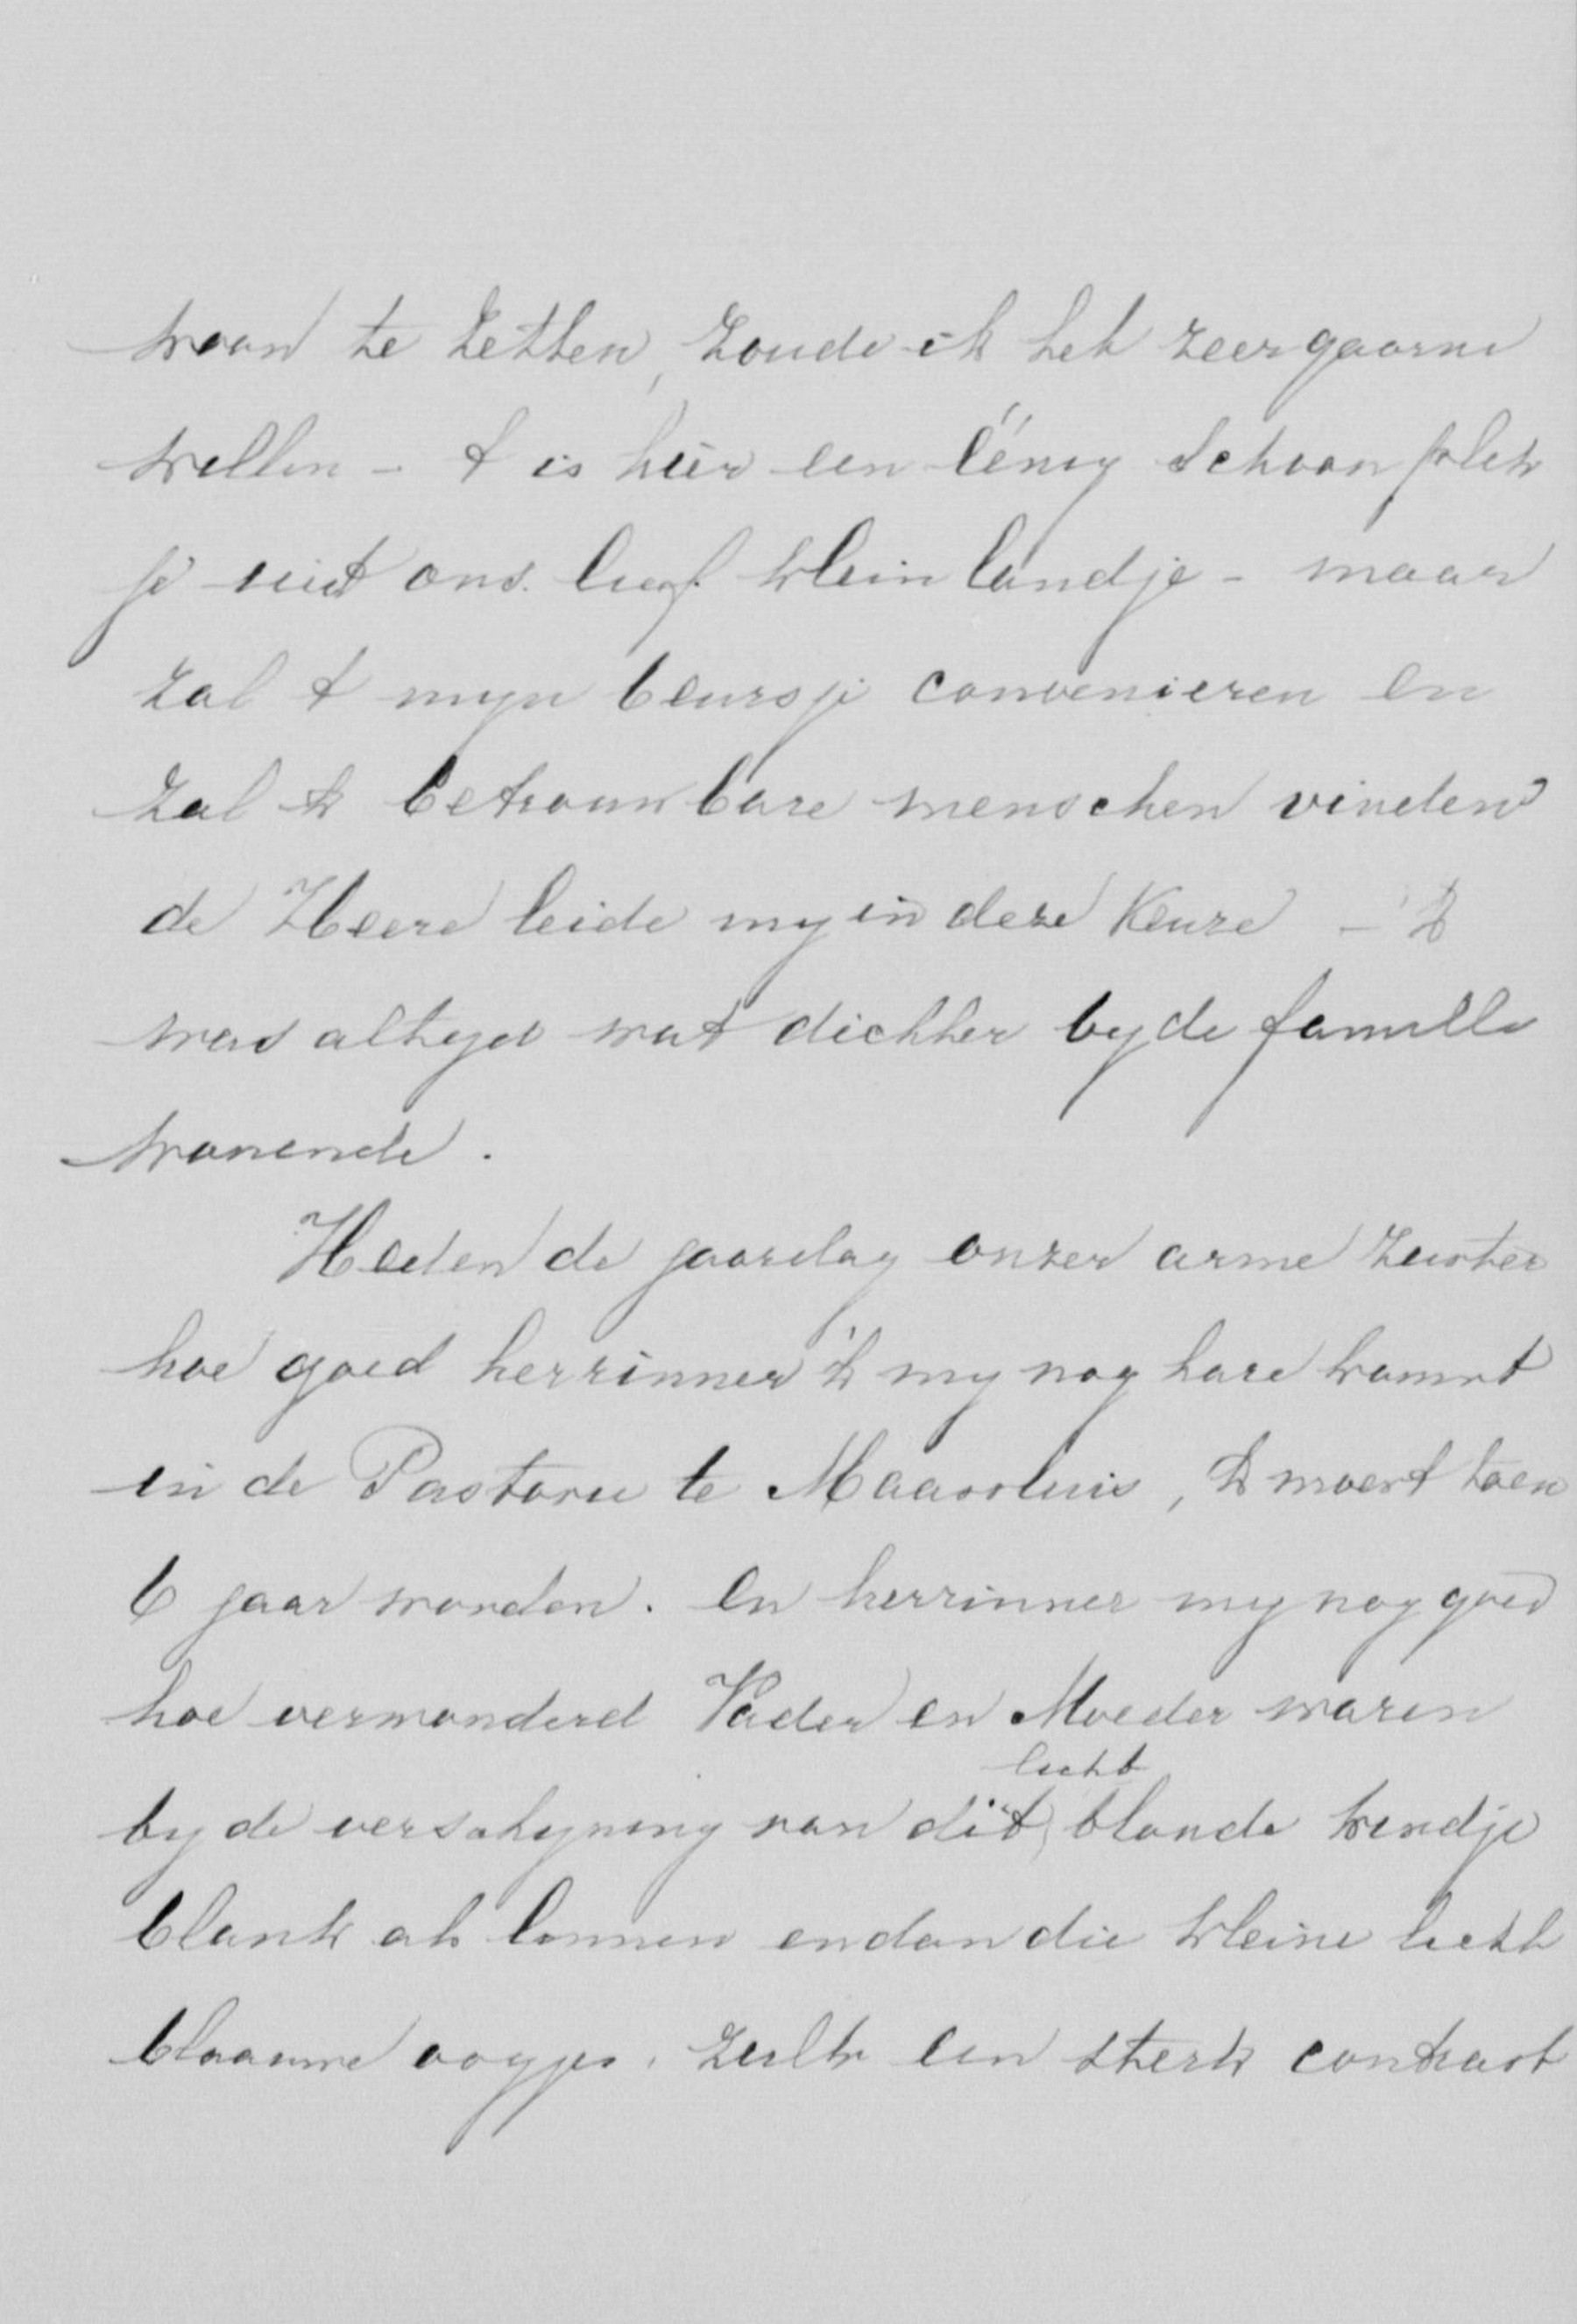 woon te zetten, zoude ik het zeer gaarne
willen - t is hier een éénig schoon plek
je uit ons lief klein landje - maar
zal t myn beursje convenieren en
zal 'k betrouwbare menschen vinden
de Heere leide my in deze keuze - 'k
was altyd wat dichter by de famille
wonende.
Heden de jaardag onzer arme zuster
hoe goed herrinner 'k my nog hare komst
in de Pastorie te Maassluis, 'k moest toen
6 jaar worden. en herrinner my nog goed
hoe verwonderd Vader en Moeder waren
licht
by de verschyning van dit blonde kindje
blank als linnen en dan die kleine licht
blaauwe oogjes. zulk een sterk contrast